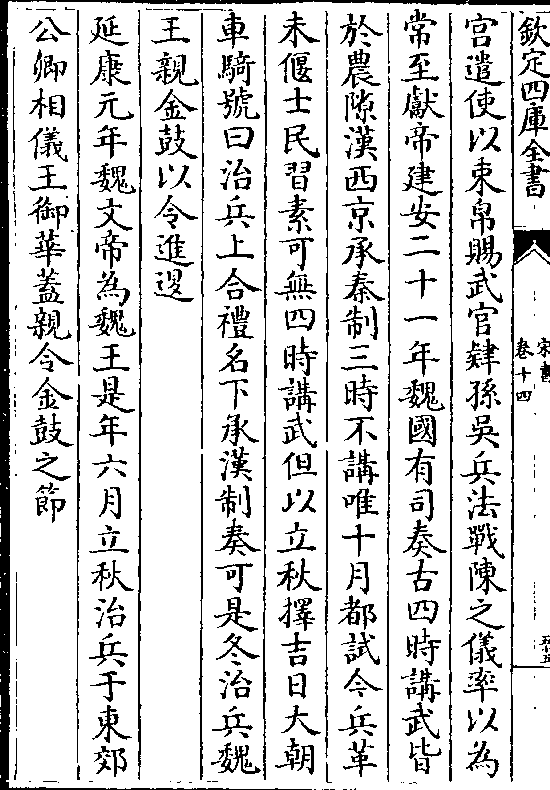 欽定四庫全書
宋書
卷十四
宫遣使以束帛賜武官肄孫吳兵法戰陳之儀率以為
常至獻帝建安二十一年魏國有司奏古四時講武皆
於農隙漢西京承秦制三時不講唯十月都試今兵革
未偃士民習素可無四時講武但以立秋擇吉日大朝
車騎號曰治兵上合禮名下承漢制奏可是冬治兵魏
王親金鼓以令進退
延康元年魏文帝為魏王是年六月立秋治兵于東郊
公卿相儀王御華蓋親令金鼓之節